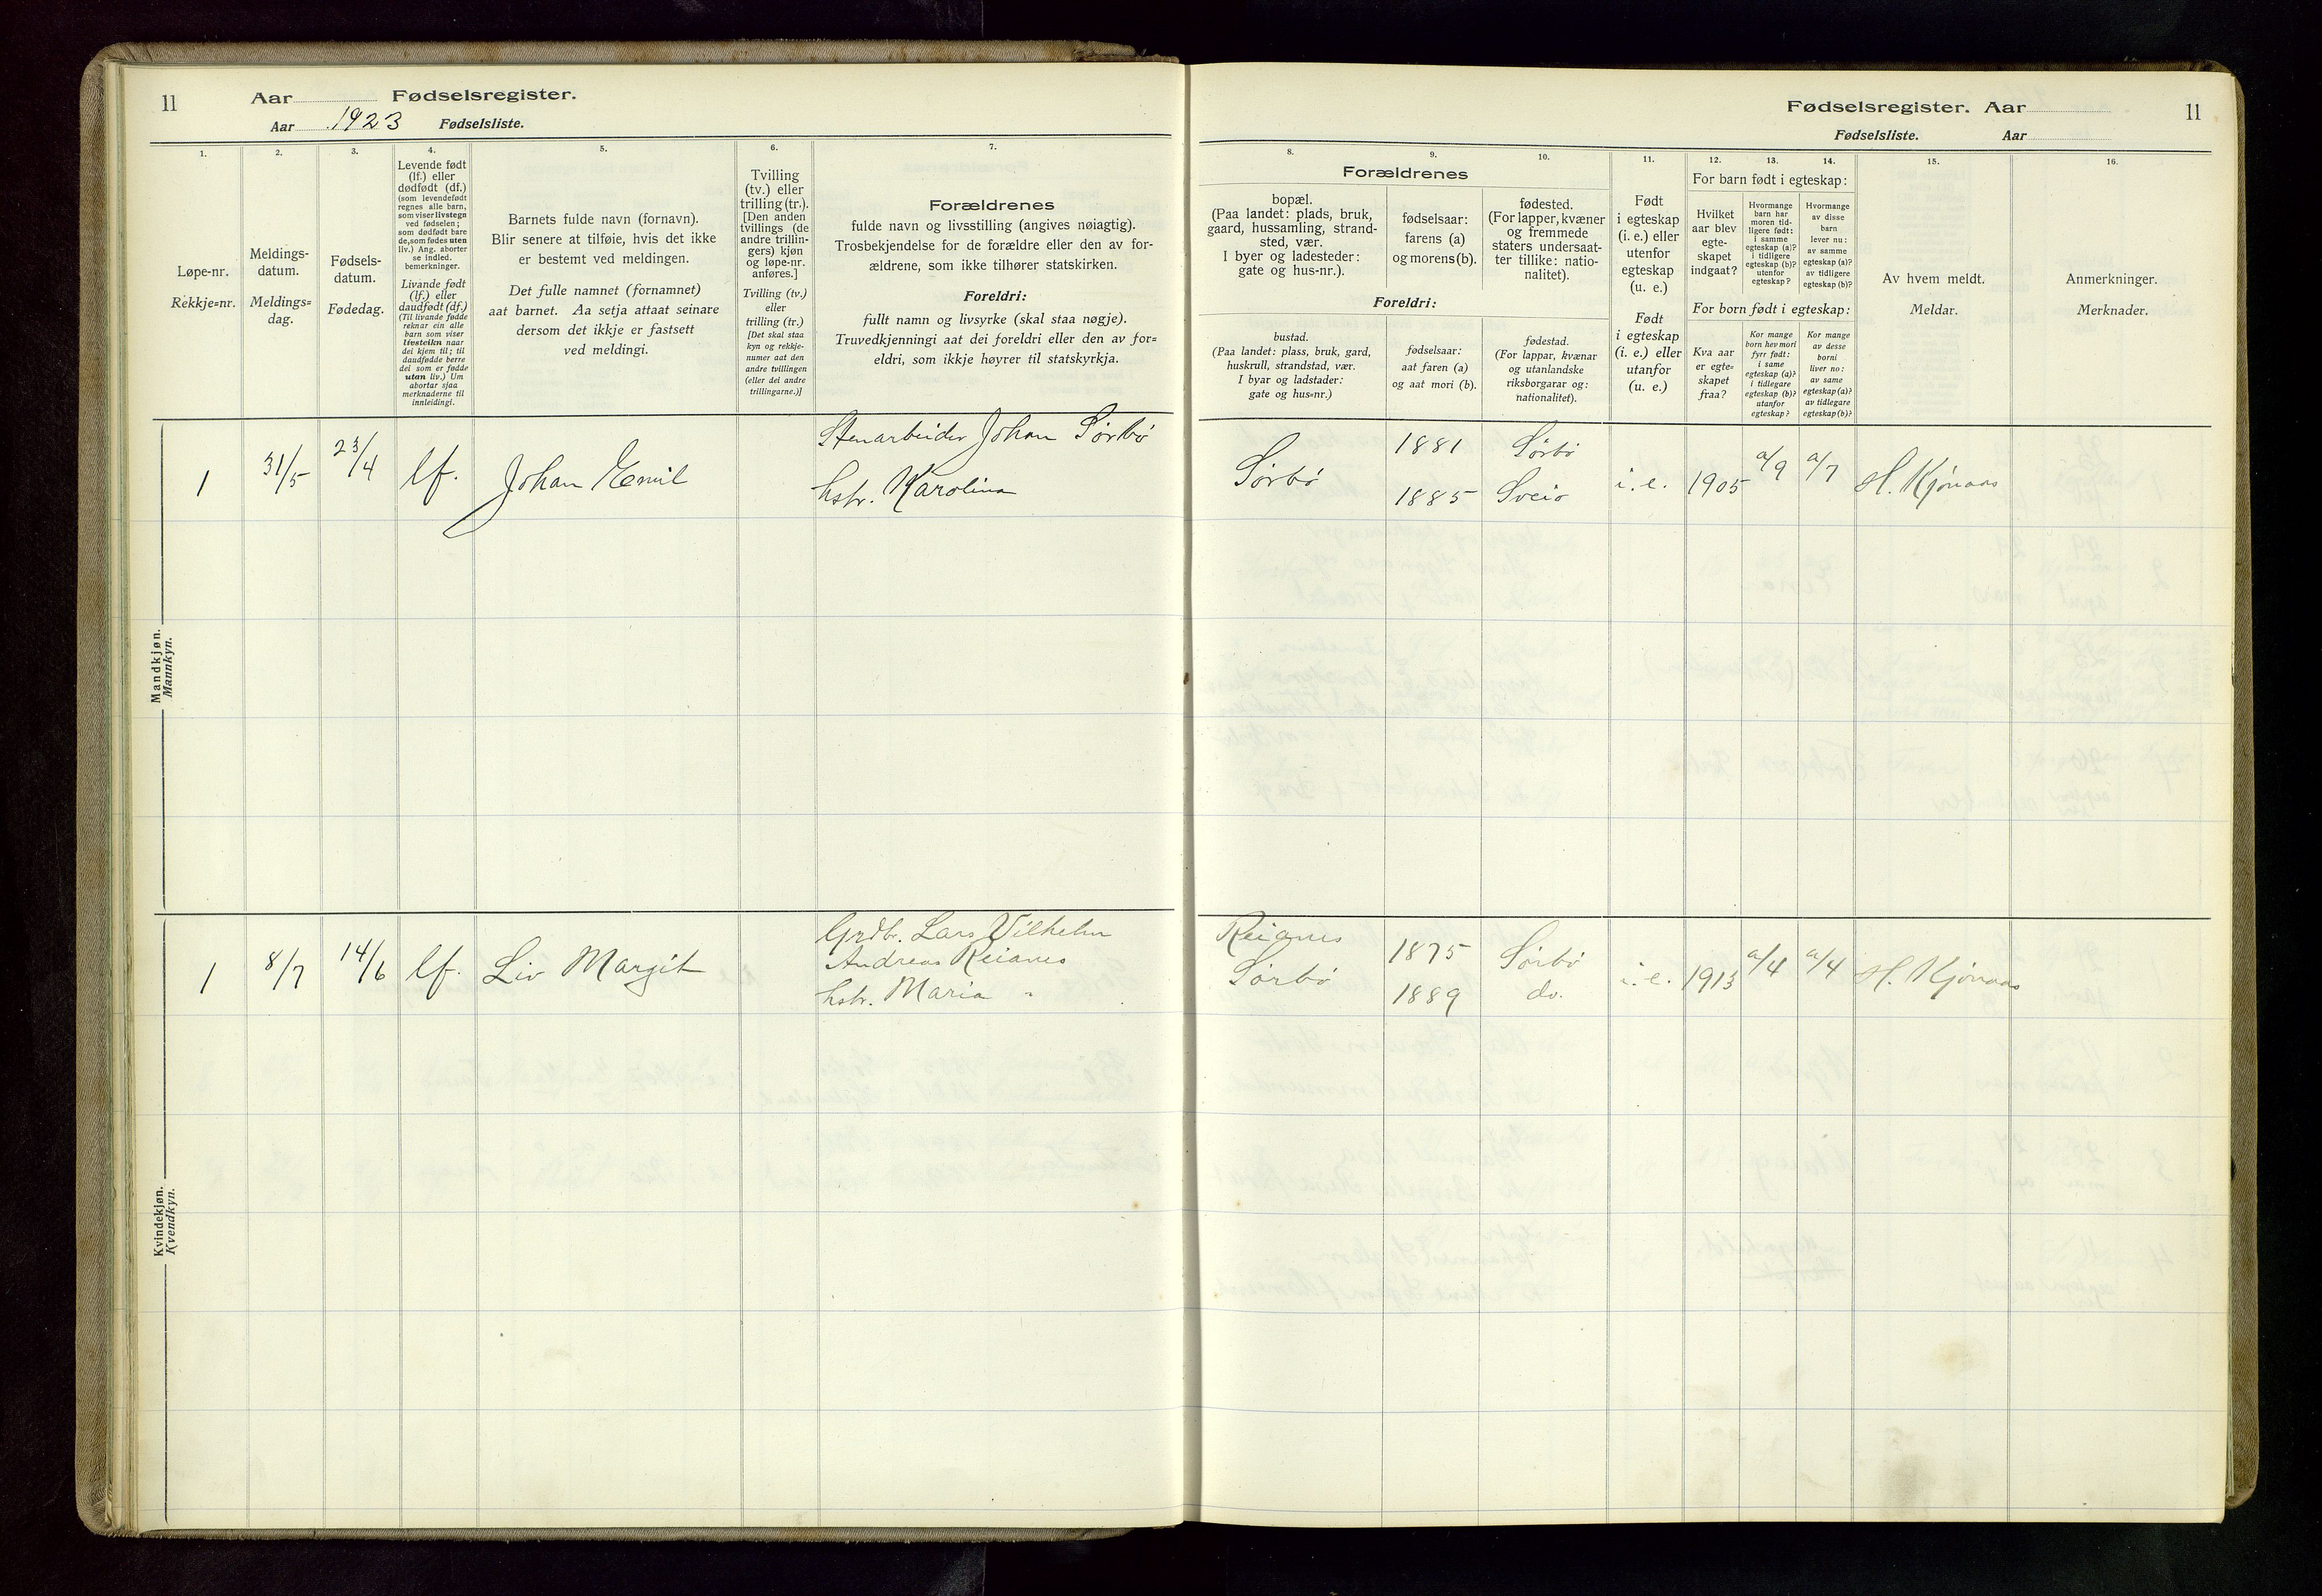 11
Aar Fødselsregister.
Aar 1923 Fødselsliste.
Fødselsregister. Aar
11
Fødselsliste. Aar
1.
Løpe-nr.
Rekkje=nr.
2.
Meldings-
datum.
Meldings=
dag.
3.
Fødsels-
datum.
Fødedag.
4.
Levende født
(lf.) eller
dødfødt (df.)
(som levendefødt
regnes alle barn,
som viser livstegn
ved fødselen;
som dødfødt bare
de, som fødes uten
liv.) Ang. aborter
se indled.
bemerkninger.
Livande født
(lf.) eller
daudfødt (df.)
(Til livande fødde
reknar ein alle
barn som viser
livsteikn naar
dei kjem til; til
daudfødde berre
dei som er fødde
utan liv.) Um
abortar sjaa
merknaderne til
innleidingi.
5.
Barnets fulde navn (fornavn).
Blir senere at tilføie, hvis det ikke
er bestemt ved meldingen.
Det fulle namnet (fornamnet)
aat barnet. Aa setja attaat seinare
dersom det ikkje er fastsett
ved meldingi.
6.
Tvilling
(tv.) eller
trilling (tr.).
[Den anden
tvillings (de
andre trillin-
gers) kjøn
og løpe-nr.
anføres.]
Tvilling (tv.)
eller
trilling (tr.)
[Det skal staa
kyn og rekkje-
numer aat den
andre tvillingen
(eller dei andre
trillingarne.)]
7.
Forældrenes
fulde navn og livsstilling (angives nøiagtig).
Trosbekjendelse for de forældre eller den av for-
ældrene, som ikke tilhører statskirken.
Foreldri:
fullt namn og livsyrke (skal staa nøgje).
Truvedkjenningi aat dei foreldri eller den av for=
eldri, som ikkje høyrer til statskyrkja.
Forældrenes
8.
bopæl.
(Paa landet: plads, bruk,
gaard, hussamling, strand-
sted, vær.
I byer og ladesteder:
gate og hus-nr.).
9.
fødselsaar:
farens (a)
og morens (b).
10.
fødested.
(For lapper, kvæner
og fremmede
staters undersaat-
ter tillike: natio-
nalitet).
Foreldri:
bustad.
(Paa landet: plass, bruk, gard,
huskrull, strandstad, vær.
I byar og ladstader:
gate og hus=nr.)
fødselsaar:
aat faren (a)
og aat mori (b).
fødestad.
(For lappar, kvænar
og utanlandske
riksborgarar og:
nationalitet).
11.
Født
i egteskap
(i. e.) eller
utenfor
egteskap
(u. e.)
Født
i egteskap
(i. e.) eller
utanfor
(u. e.)
12. 13. 14.
For barn født i egteskap:
Hvilket
aar blev
egte-
skapet
indgaat?
Hvormange
barn har
moren tid-
ligere født:
i samme
egteskap (a)?
i tidligere
egteskap (b)?
utenfor
egteskap?
Hvormange
av disse
barn
lever nu:
av samme
egteskap (a)?
av tidligere
egteskap (b)?
For born født i egteskap:
Kva aar
er egte=
skapet
fraa?
Kor mange
born hev mori
fyrr født:
i same
egteskap (a)?
i tidlegare
egteskap (b)?
utanfor
egteskap?
Kor mange
av desse
borni
liver no:
av same
egteskap (a)?
av tidlegare
egteskap (b)?
15.
Av hvem meldt.
Meldar.
16.
Anmerkninger.
Merknader.
Mandkjøn.
Mannkyn.
Stenarbeider Johan Sørbö 1881 Sørbö
1 31/5 23/4 lf. Johan Emil Sørbö i. e. 1905 a/9 a/7 H. Kjönaas
hstr. Karolina 1885 Sveio
Kvindekjøn.
Kvendkyn.
Grdbr. Lars Vilhelm Reianes
Andreas Reianes 1875 Sørbö
1 8/7 14/6 lf. Liv Margit Sørbö i. e. 1913 a/4 a/4 H. Kjönaas
hstr. Maria " 1889 do.